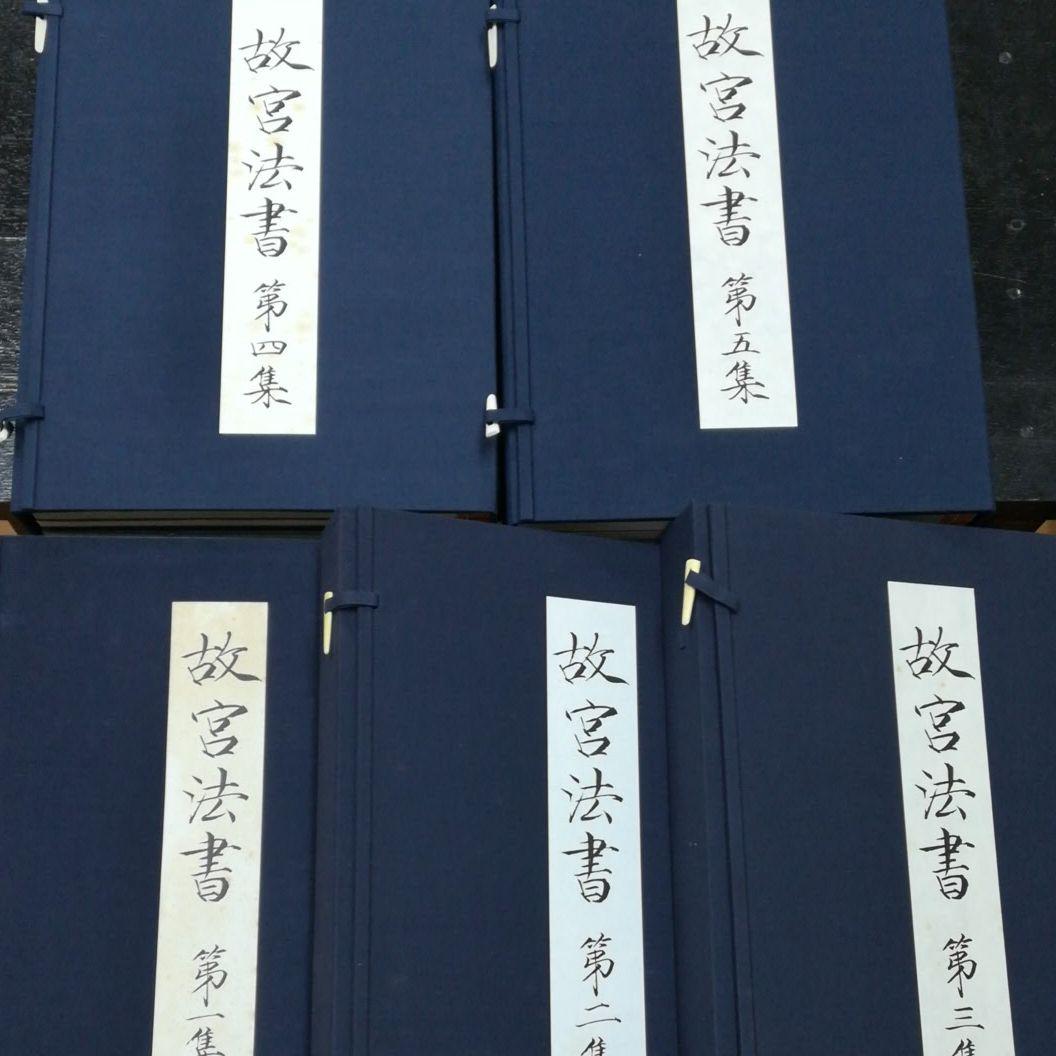 故宮法書 第四集
故宮法書 第五集
故宮法書 第一集
故宮法書 第二集
故宮法書 第三集